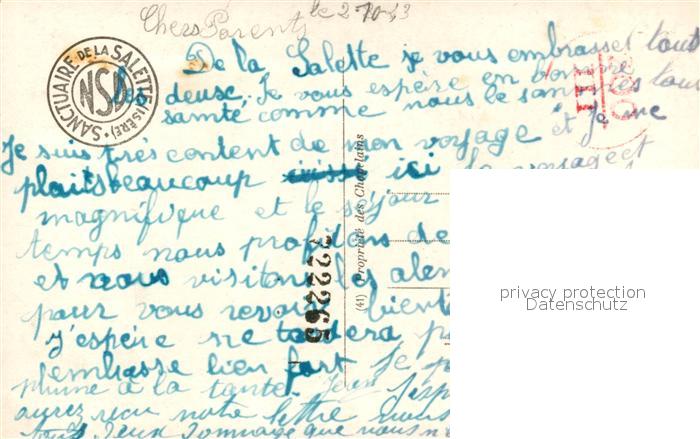 le 2-10-43
Chers Parents
SANCTUAIRE DE LA SALETTE (ISÈRE)
NSD
De la Salette je vous embrasse tout
les deux, Je vous espère en bonne
santé comme nous le sommes tous
Je suis très content de mon voyage et Je me
plaits beaucoup ici le voyage et
magnifique et le séjour
temps nous profitons de
et nous visitons les alen
pour vous revoir bient
J'espère ne tardera p
embrasse bien fort Je p
plume à la tante. J'esp
aurez reçu notre lettre
tous deux dommage que nous n
(41) Propriété des Chapelains
722265
III
privacy protection
Datenschutz